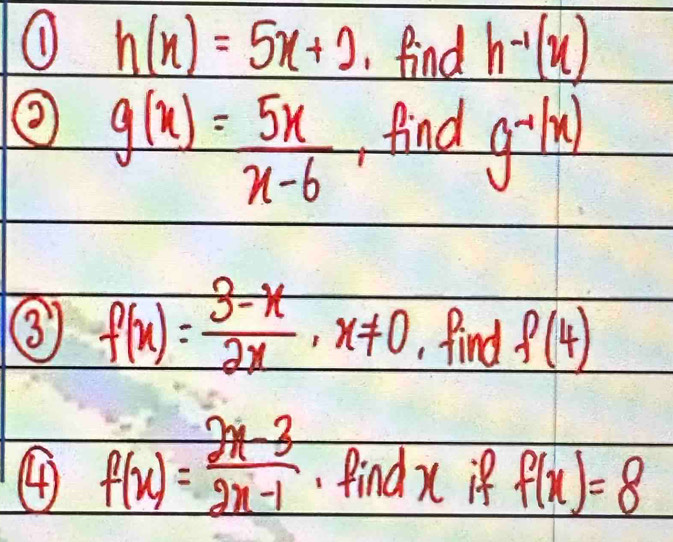 ① h(x) = 5x + 2. find h⁻¹(x)
② g(x) = 5x/(x-6), find g⁻¹(x)
③ f(x) = (3-x)/(2x), x≠0, find f(4)
④ f(x) = (2x-3)/(2x-1). find x if f(x) = 8